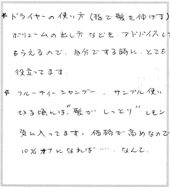 * ドライヤーの使い方(指で髪を伸ばす)
ボリュームの出し方なども、アドバイスし
もらえるので、自分でする時に、とても
役立ってます。
* フルーティーシャンプー、サンプル使い
切る頃には"髪がしっとり"レモン
気に入ってます。価格が高めなので
10%オフになれば…、なんて。